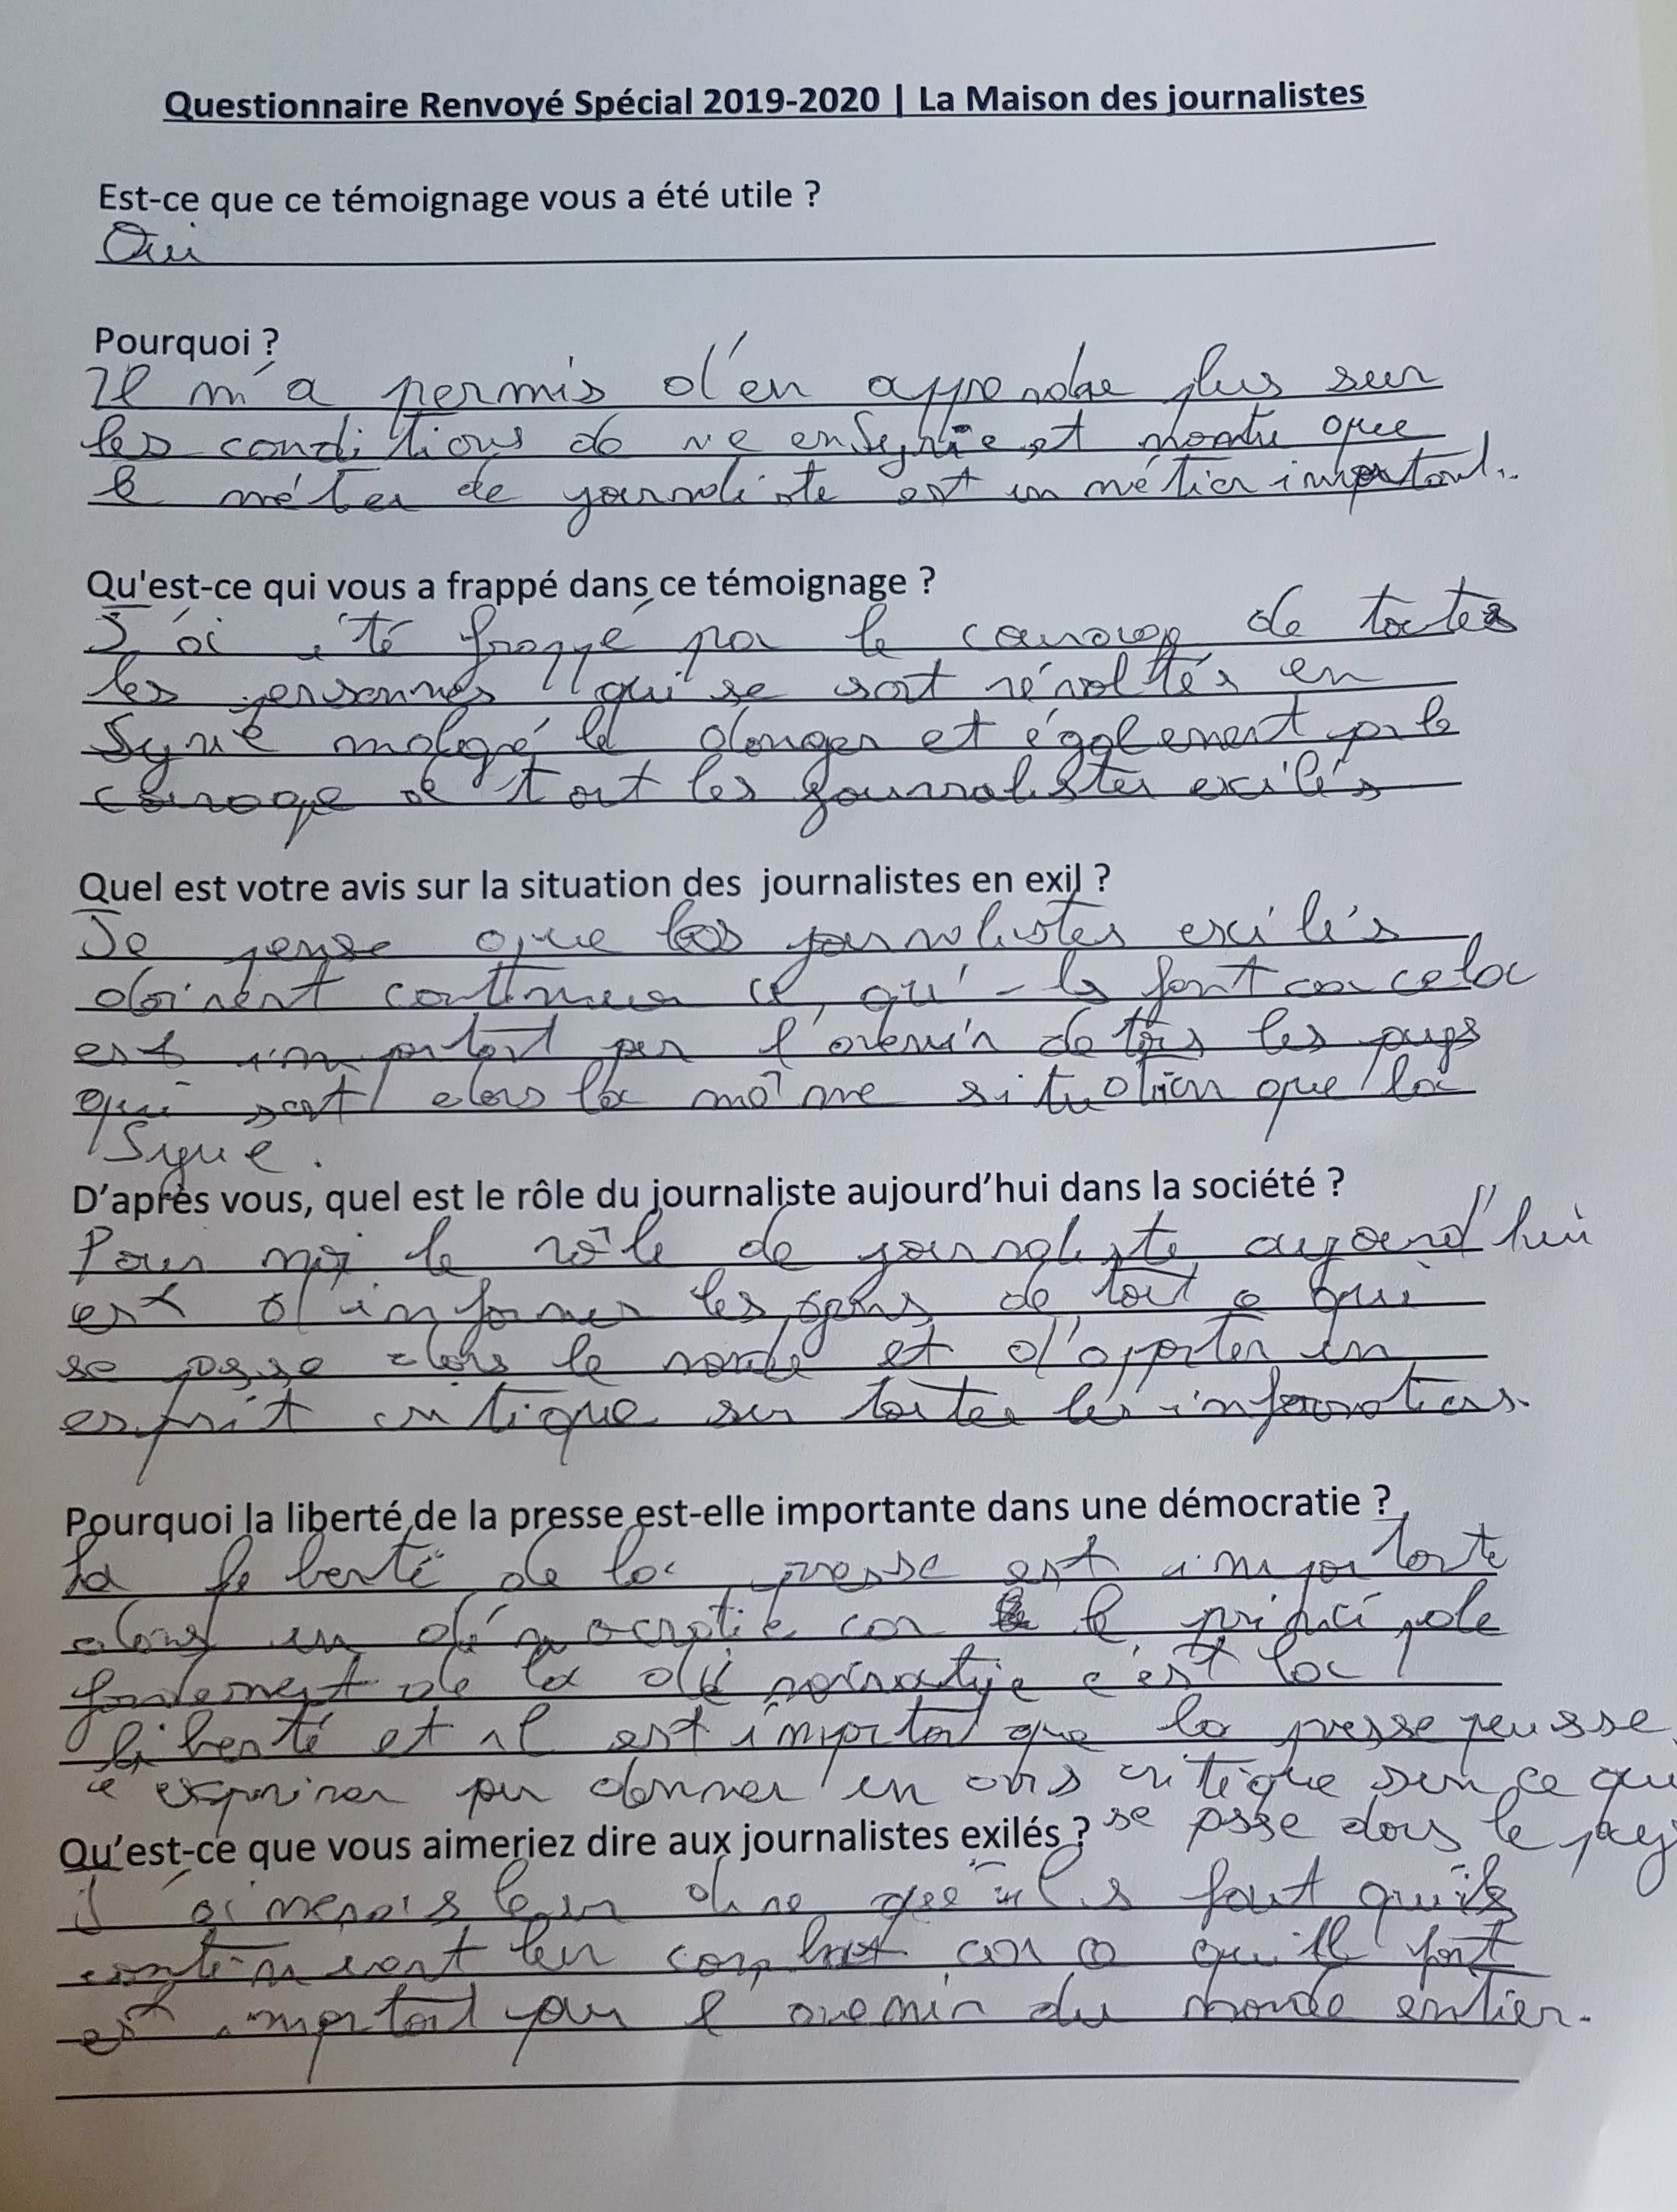 Questionnaire Renvoyé Spécial 2019-2020 | La Maison des journalistes
Est-ce que ce témoignage vous a été utile ?
Oui
Pourquoi ?
Il m'a permis d'en apprendre plus sur
les conditions de vie en Syrie et montre que
le métier de journaliste est un métier important.
Qu'est-ce qui vous a frappé dans ce témoignage ?
J'ai été frappé par le courage de toutes
les personnes qui se sont révoltés en
Syrie malgré le danger et également par le
courage de tout les journalistes exilés
Quel est votre avis sur la situation des journalistes en exil ?
Je pense que les journalistes exilés
doivent continuer ce qu'ils font car cela
est important pour l'avenir de tous les pays
qui sont dans la même situation que la
Syrie.
D'après vous, quel est le rôle du journaliste aujourd'hui dans la société ?
Pour moi le rôle de journaliste aujourd'hui
est d'informer les gens de tout ce qui
se passe dans le monde et d'apporter un
esprit critique sur toutes les informations.
Pourquoi la liberté de la presse est-elle importante dans une démocratie ?
La liberté de la presse est importante
dans un démocratie car le principale
fondement de la démocratie c'est la
liberté et il est important que la presse puisse
s'exprimer pour donner un avis critique sur ce qui
se passe dans le pays
Qu'est-ce que vous aimeriez dire aux journalistes exilés ?
J'aimerais leur dire qu'ils faut qu'ils
continuent leur combat car ce qu'il font
est important pour l'avenir du monde entier.